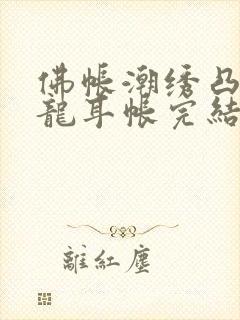 佛帳潮绣凸
龍耳帐完結
離紅塵